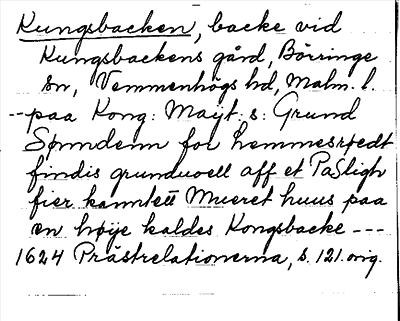 Kungsbacken, backe vid
Kungsbackens gård, Börringe
sn, Vemmenhögs hd, Malm. l.
--paa Kong: Mayt: s: Grund
Sønndenn for hemmesrøedt
findis grunduoell aff et Pasligh
fier kanntett Mueret huus paa
en høije kaldes Kongsbacke ---
1624 Prästrelationerna, s. 121. orig.